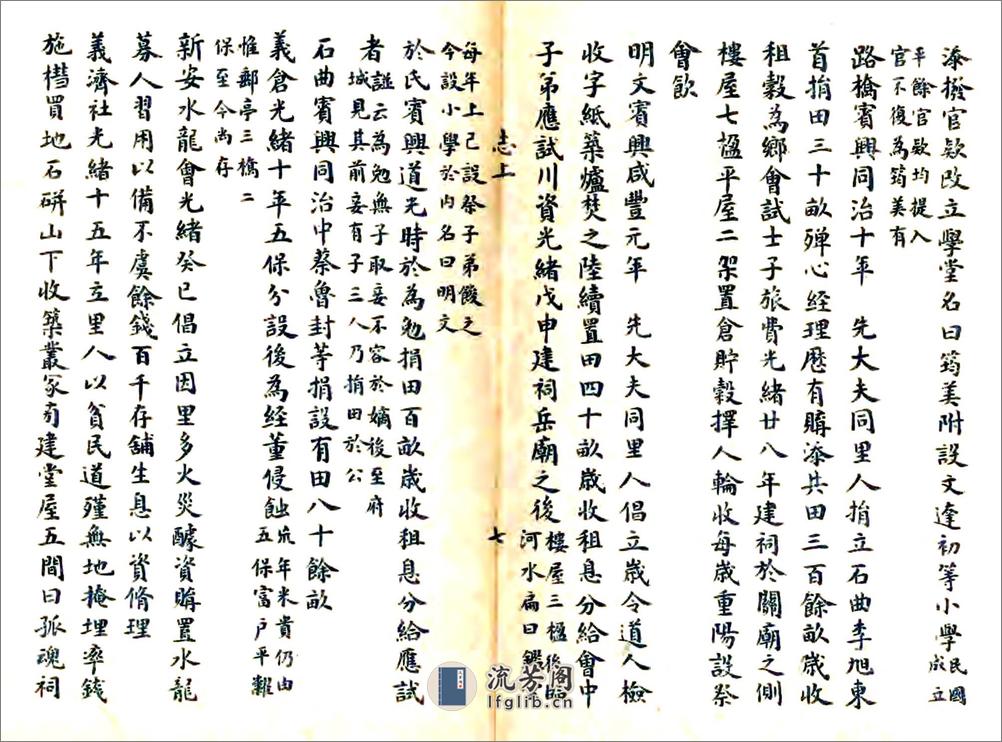 添撥官欵改立學堂名曰筠美附設文達初等小學民國成立
平餘官欵均提入
官不復為筠美有
路橋賓興同治十年 先大夫同里人捐立石曲李旭東
首捐田三十畝殫心経理歷有購添共田三百餘畝歲收
租穀為鄉會試士子旅費光緒廿八年建祠於關廟之側
樓屋七楹平屋二架置倉貯穀擇人輪收每歲重陽設祭
會飲
明文賓興咸豐元年 先大夫同里人倡立歲令道人檢
收字紙築爐焚之陸續置田四十畝歲收租息分給會中
子弟應試川資光緒戊申建祠岳廟之後樓屋三楹後臨
河水扁曰
志上
七
每年上巳設祭子弟餕之
今設小學於內名曰明文
於氏賓興道光時於為勉捐田百畝歲收租息分給應試
者謹云為勉無子取妾不容於嫡後至府
城見其前妾有子三人乃捐田於公
石曲賓興同治中蔡魯封等捐設有田八十餘畝
義倉光緒十年五保分設後為経董侵蝕荒年米貴仍由
五保富户平糶
惟郵亭三橋二
保至今尚存
新安水龍會光緒癸巳倡立因里多火災醵資購置水龍
募人習用以備不虞餘錢百千存舖生息以資脩理
義濟社光緒十五年立里人以貧民道殣無地掩埋率錢
施槥買地石硏山下收築叢冢旁建堂屋五間曰孤魂祠
流芳阁
lfglib.cn